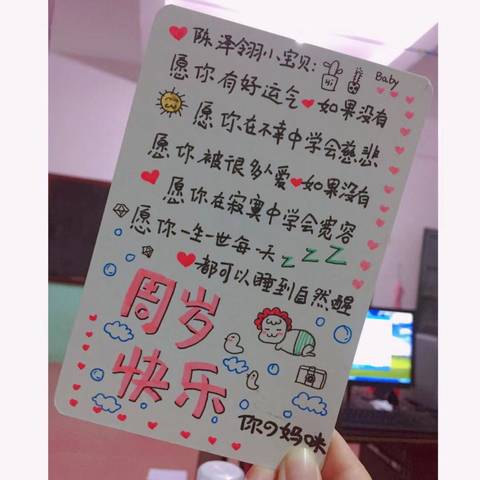 陈泽翎小宝贝:
Hi
Baby
愿你有好运气 如果没有
愿你在不幸中学会慈悲
愿你被很多人爱 如果没有
愿你在寂寞中学会宽容
愿你一生一世每一天 z z z
都可以睡到自然醒
周岁
快乐
你の妈咪